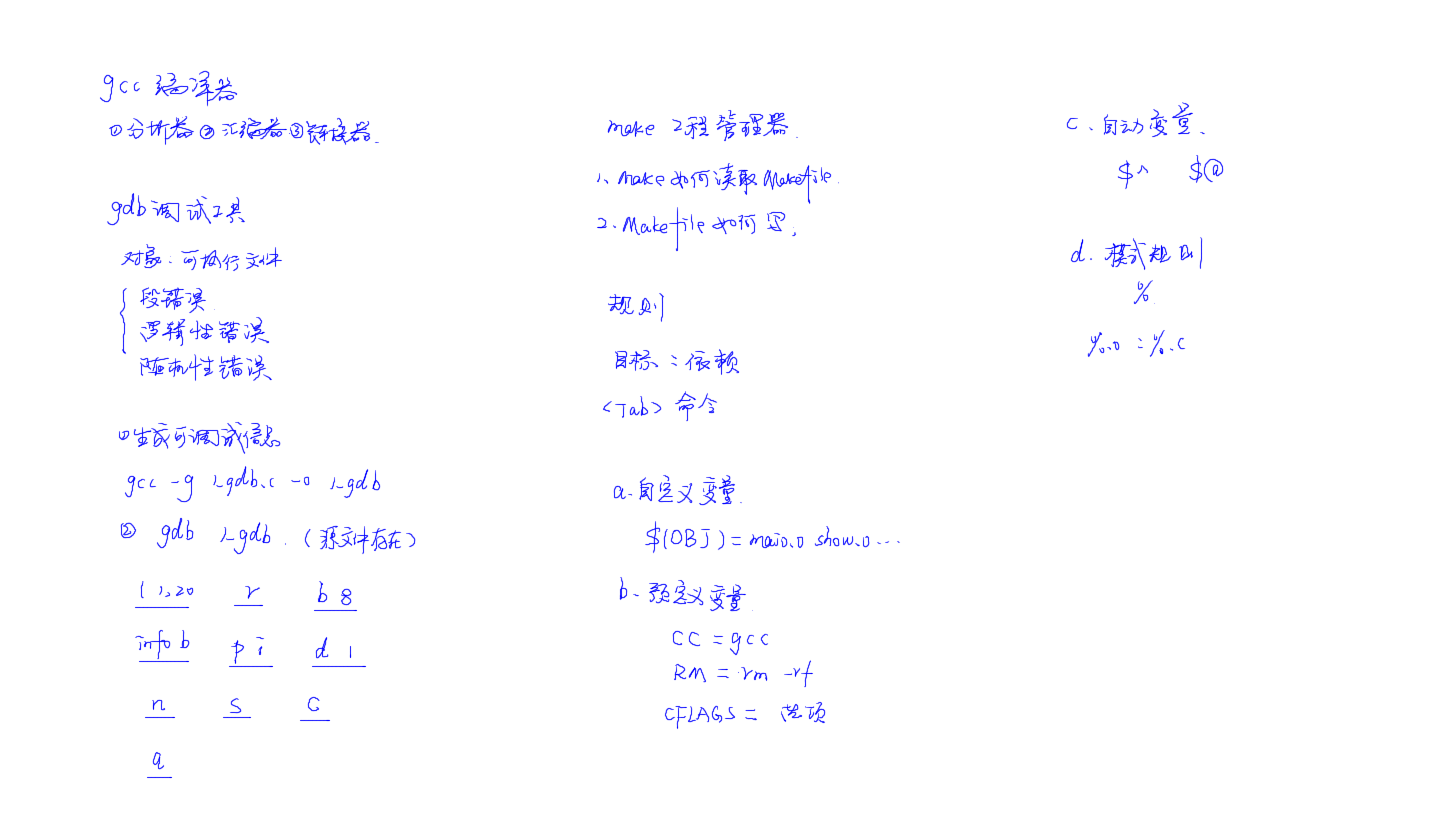 gcc 编译器
①分析器②汇编器③链接器.
gdb调试工具
对象:可执行文件
段错误
逻辑性错误
随机性错误
①生成可调试信息
gcc -g 1-gdb.c -o 1-gdb
② gdb 1-gdb.(源文件存在)
l 1,20 r b 8
info b p i d 1
n s c
q
make 工程管理器.
1、make如何读取Makefile.
2.Makefile如何写,
规则
目标:依赖
<Tab>命令
a.自定义变量.
$(OBJ)=main.o show.o ...
b、预定义变量.
CC=gcc
RM=rm -rf
CFLAGS= 选项
c、自动变量、
$^ $@
d.模式规则
%
%.o:%.c